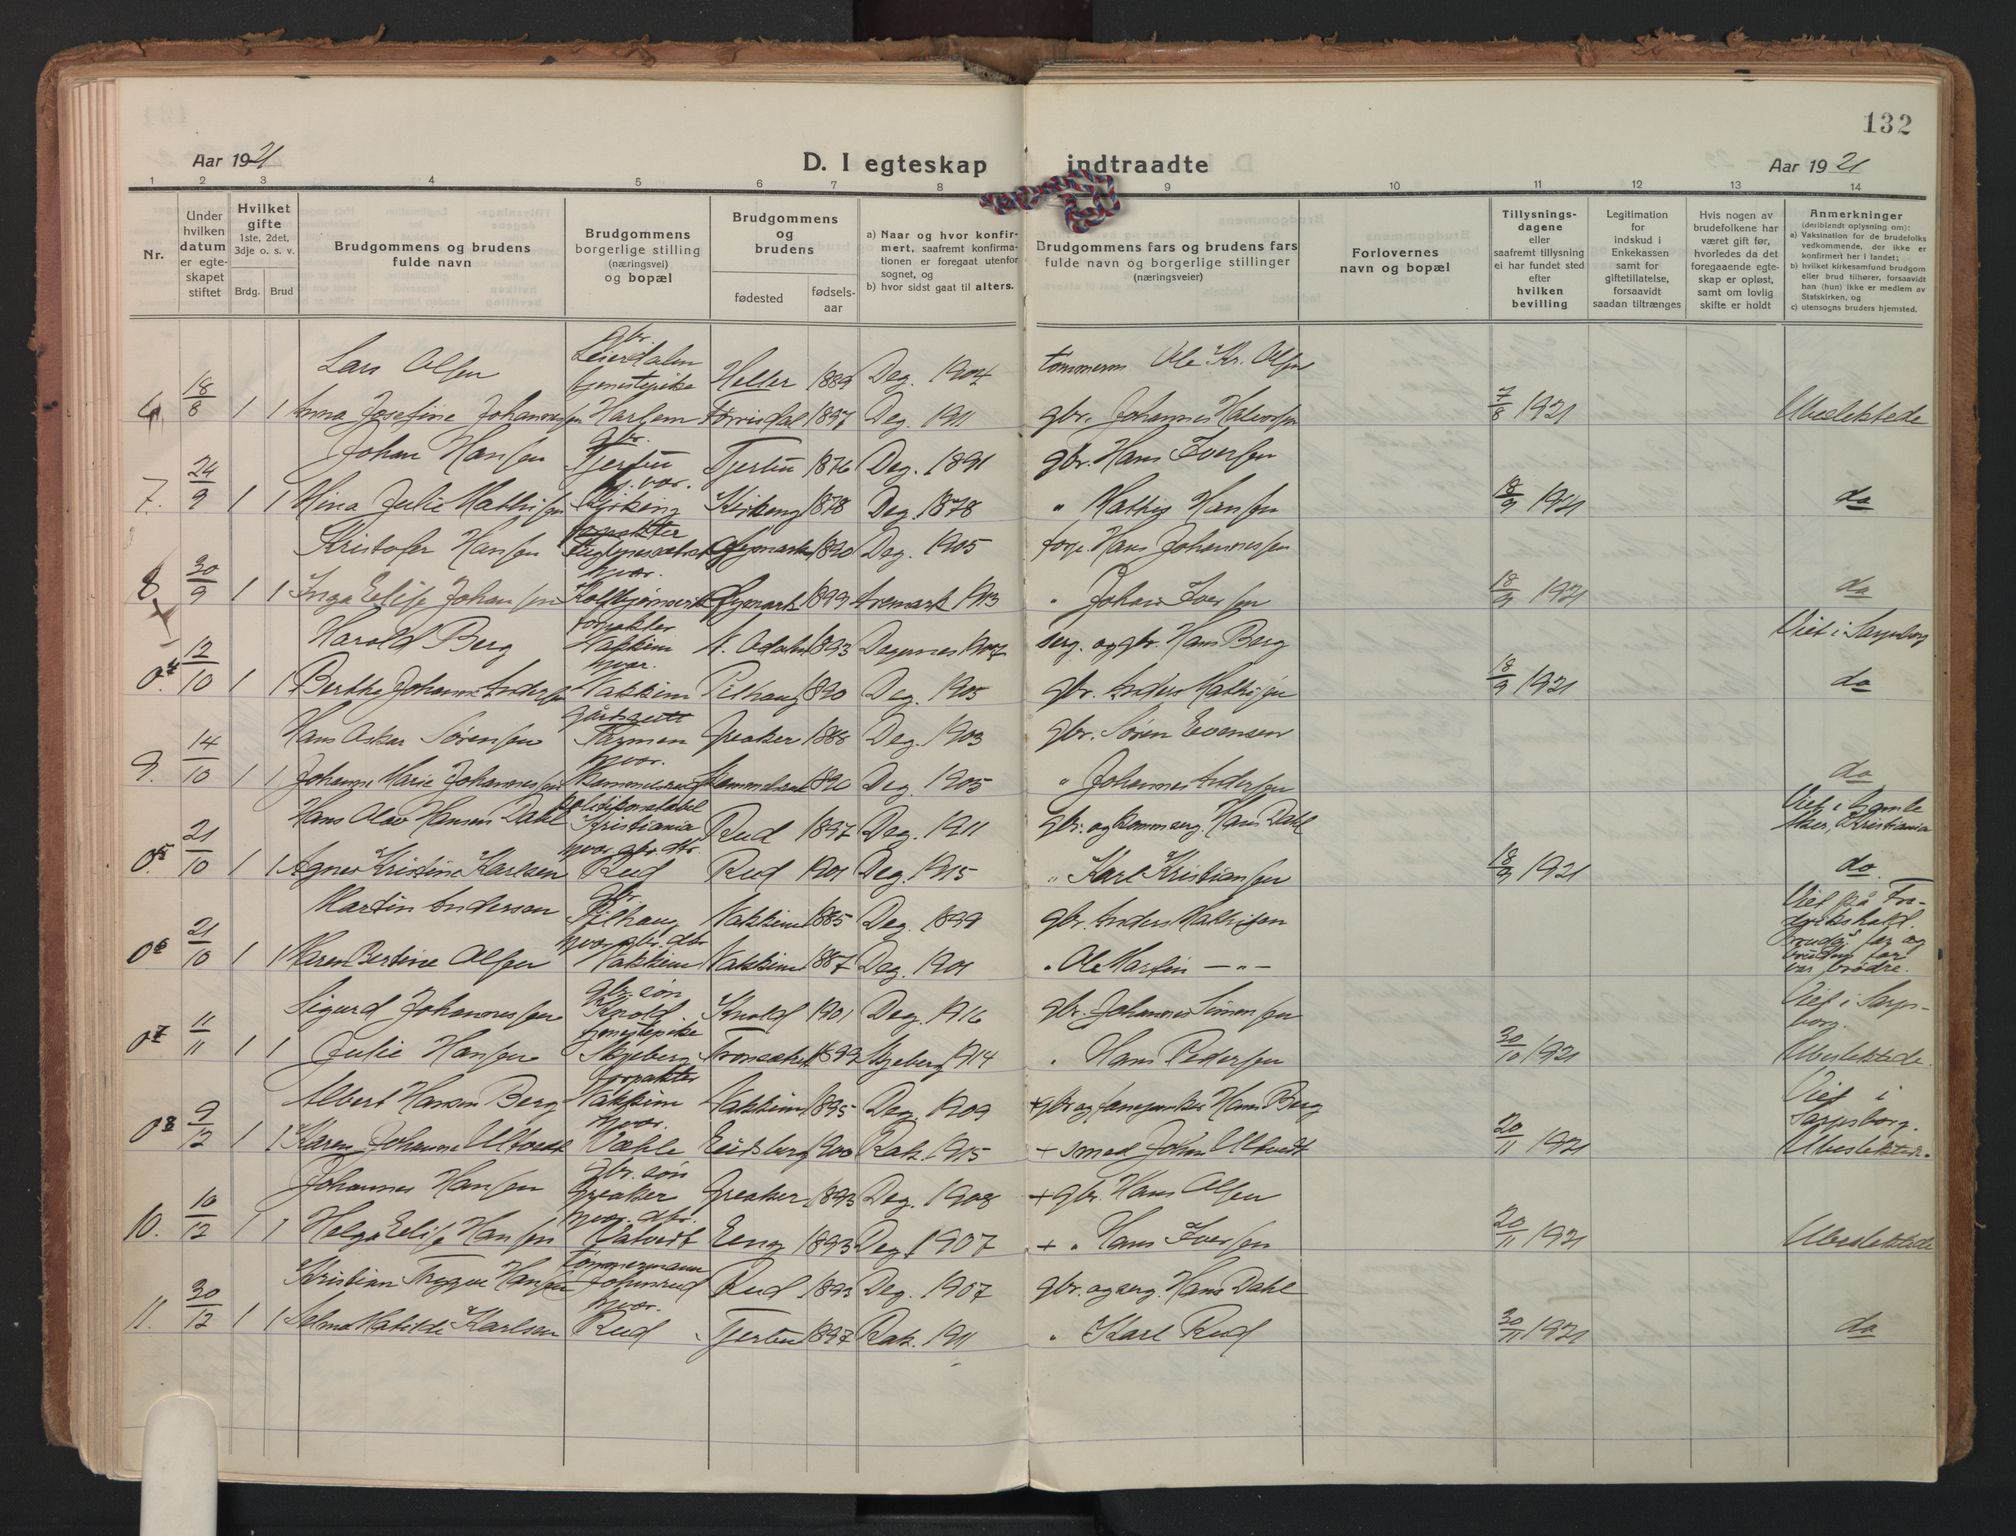 132
Aar 1921
D. I egteskap indtraadte
Aar 1921
1 2 3 4 5 6 7 8 9 10 11 12 13 14
Nr.
Under hvilken datum er egteskapet stiftet
Hvilket gifte 1ste, 2det, 3dje o. s. v.
Brdg. Brud
Brudgommens og brudens fulde navn
Brudgommens borgerlige stilling (næringsvei) og bopæl
Brudgommens og brudens
fødested fødselsaar
a) Naar og hvor konfirmert, saafremt konfirmationen er foregaat utenfor sognet, og
b) hvor sidst gaat til alters.
Brudgommens fars og brudens fars fulde navn og borgerlige stillinger (næringsveier)
Forlovernes navn og bopæl
Tillysningsdagene eller saafremt tillysning ei har fundet sted efter hvilken bevilling
Legitimation for indskud i Enkekassen samt for giftetillatelse, forsaavidt saadan tiltrænges
Hvis nogen av brudefolkene har været gift før, hvorledes da det foregaaende egteskap er opløst, samt om lovlig skifte er holdt
Anmerkninger (deriblandt oplysning om):
a) Vaksination for de brudefolks vedkommende, der ikke er konfirmert her i landet;
b) hvilket kirkesamfund brudgom eller brud tilhører, forsaavidt han (hun) ikke er medlem av Statskirken, og
c) utensogns bruders hjemsted.
Lars Olsen gbr. Heller 1889 Deg. 1904 tømmerm Ole Kr. Olsen
6 18/8 1 1 Anna Josefine Johannessen tjenestepike Harlem 1897 Deg. 1911 gbr. Johannes Halvorsen 7/8 1921 Ubeslektede
Johan Hansen gbr. Tjertu 1876 Deg. 1891 gbr. Hans Iversen
7. 24/9 1 1 Mina Julie Mathisen Kirkeng 1878 Deg. 1878 " Mathis Hansen 18/9 1921 do
Kristofer Hansen 1890 Deg. 1905 Hans Johannessen
8 30/9 1 1 Inga Elise Johansen hvar. 1899 Aremark 1913 " Johan Iversen 18/9 1921 do
Harald Berg forpakter Nakkim 1893 Degernes 1907 og gbr. Hans Berg Viet i Sarpsborg
0 4 12/10 1 1 Berthe Johanne Andersen hvar. Nakkim 1890 Deg. 1905 gbr. Anders Mathisen 18/9 1921 do
Hans Oskar Sørensen Greaker 1888 Deg. 1903 gbr. Søren Evensen
9. 14/10 1 1 Johanne Marie Johannessen hvar. 1890 Deg. 1905 " Johannes Andersen do
Hans Olav Hansen Dahl politikonstabel Kristiania Rud 1897 Deg. 1911 gbr. og Hans Dahl Viet i Gamle Aker, Kristiania
0 5 21/10 1 1 Agnes Kristine Karlsen hvar gbr. dtr. Rud Rud 1901 Deg. 1915 " Karl Kristiansen 18/9 1921 do.
Martin Andersen gbr. Pilhaug Nakkim 1885 Deg. 1899 gbr. Anders Mathisen Viet på Fredrikshald.
0 6 21/10 1 1 Karen Bertine Olsen hvar gbr. dtr Nakkim Nakkim 1887 Deg. 1901 " Ole Martin —"— brudg.s far og brudens far var brødre.
Sigurd Johannessen gbr. søn Knold Knold 1901 Deg. 1916 gbr. Johannes Simensen Viet i Sarpsborg.
0 7 11/11 1 1 Julie Hansen tjenestepike Skjeberg 1899 Skjeberg 1914 " Hans Pedersen 30/10 1921 Ubeslektede.
Albert Hansen Berg forpakter Nakkim Nakkim 1895 Deg. 1909 + gbr og Hans Berg Viet i Sarpsborg.
0 8 9/12 1 1 Karen Johanne Ultvedt hvar. Vahle Eidsberg 1900 Rak. 1915 + smed Johan Ultvedt 20/11 1921 Ubeslektede.
Johannes Hansen gbr. søn Greaker Greaker 1893 Deg. 1908 + gbr Hans Olsen
10. 10/12 1 1 Helga Elise Hansen hvar. dtr. Eeng 1893 Deg. 1907 + " Hans Iversen 20/11 1921 Ubeslektede
Kristian Trygve Hansen Tømmermann Johnsrud Rud 1893 Deg. 1907 gbr. og Hans Dahl
11. 30/12 1 1 Selma Matilde Karlsen hvar. Rud Tjertu 1897 Rak. 1911 " Karl Rud 30/11 1921 do